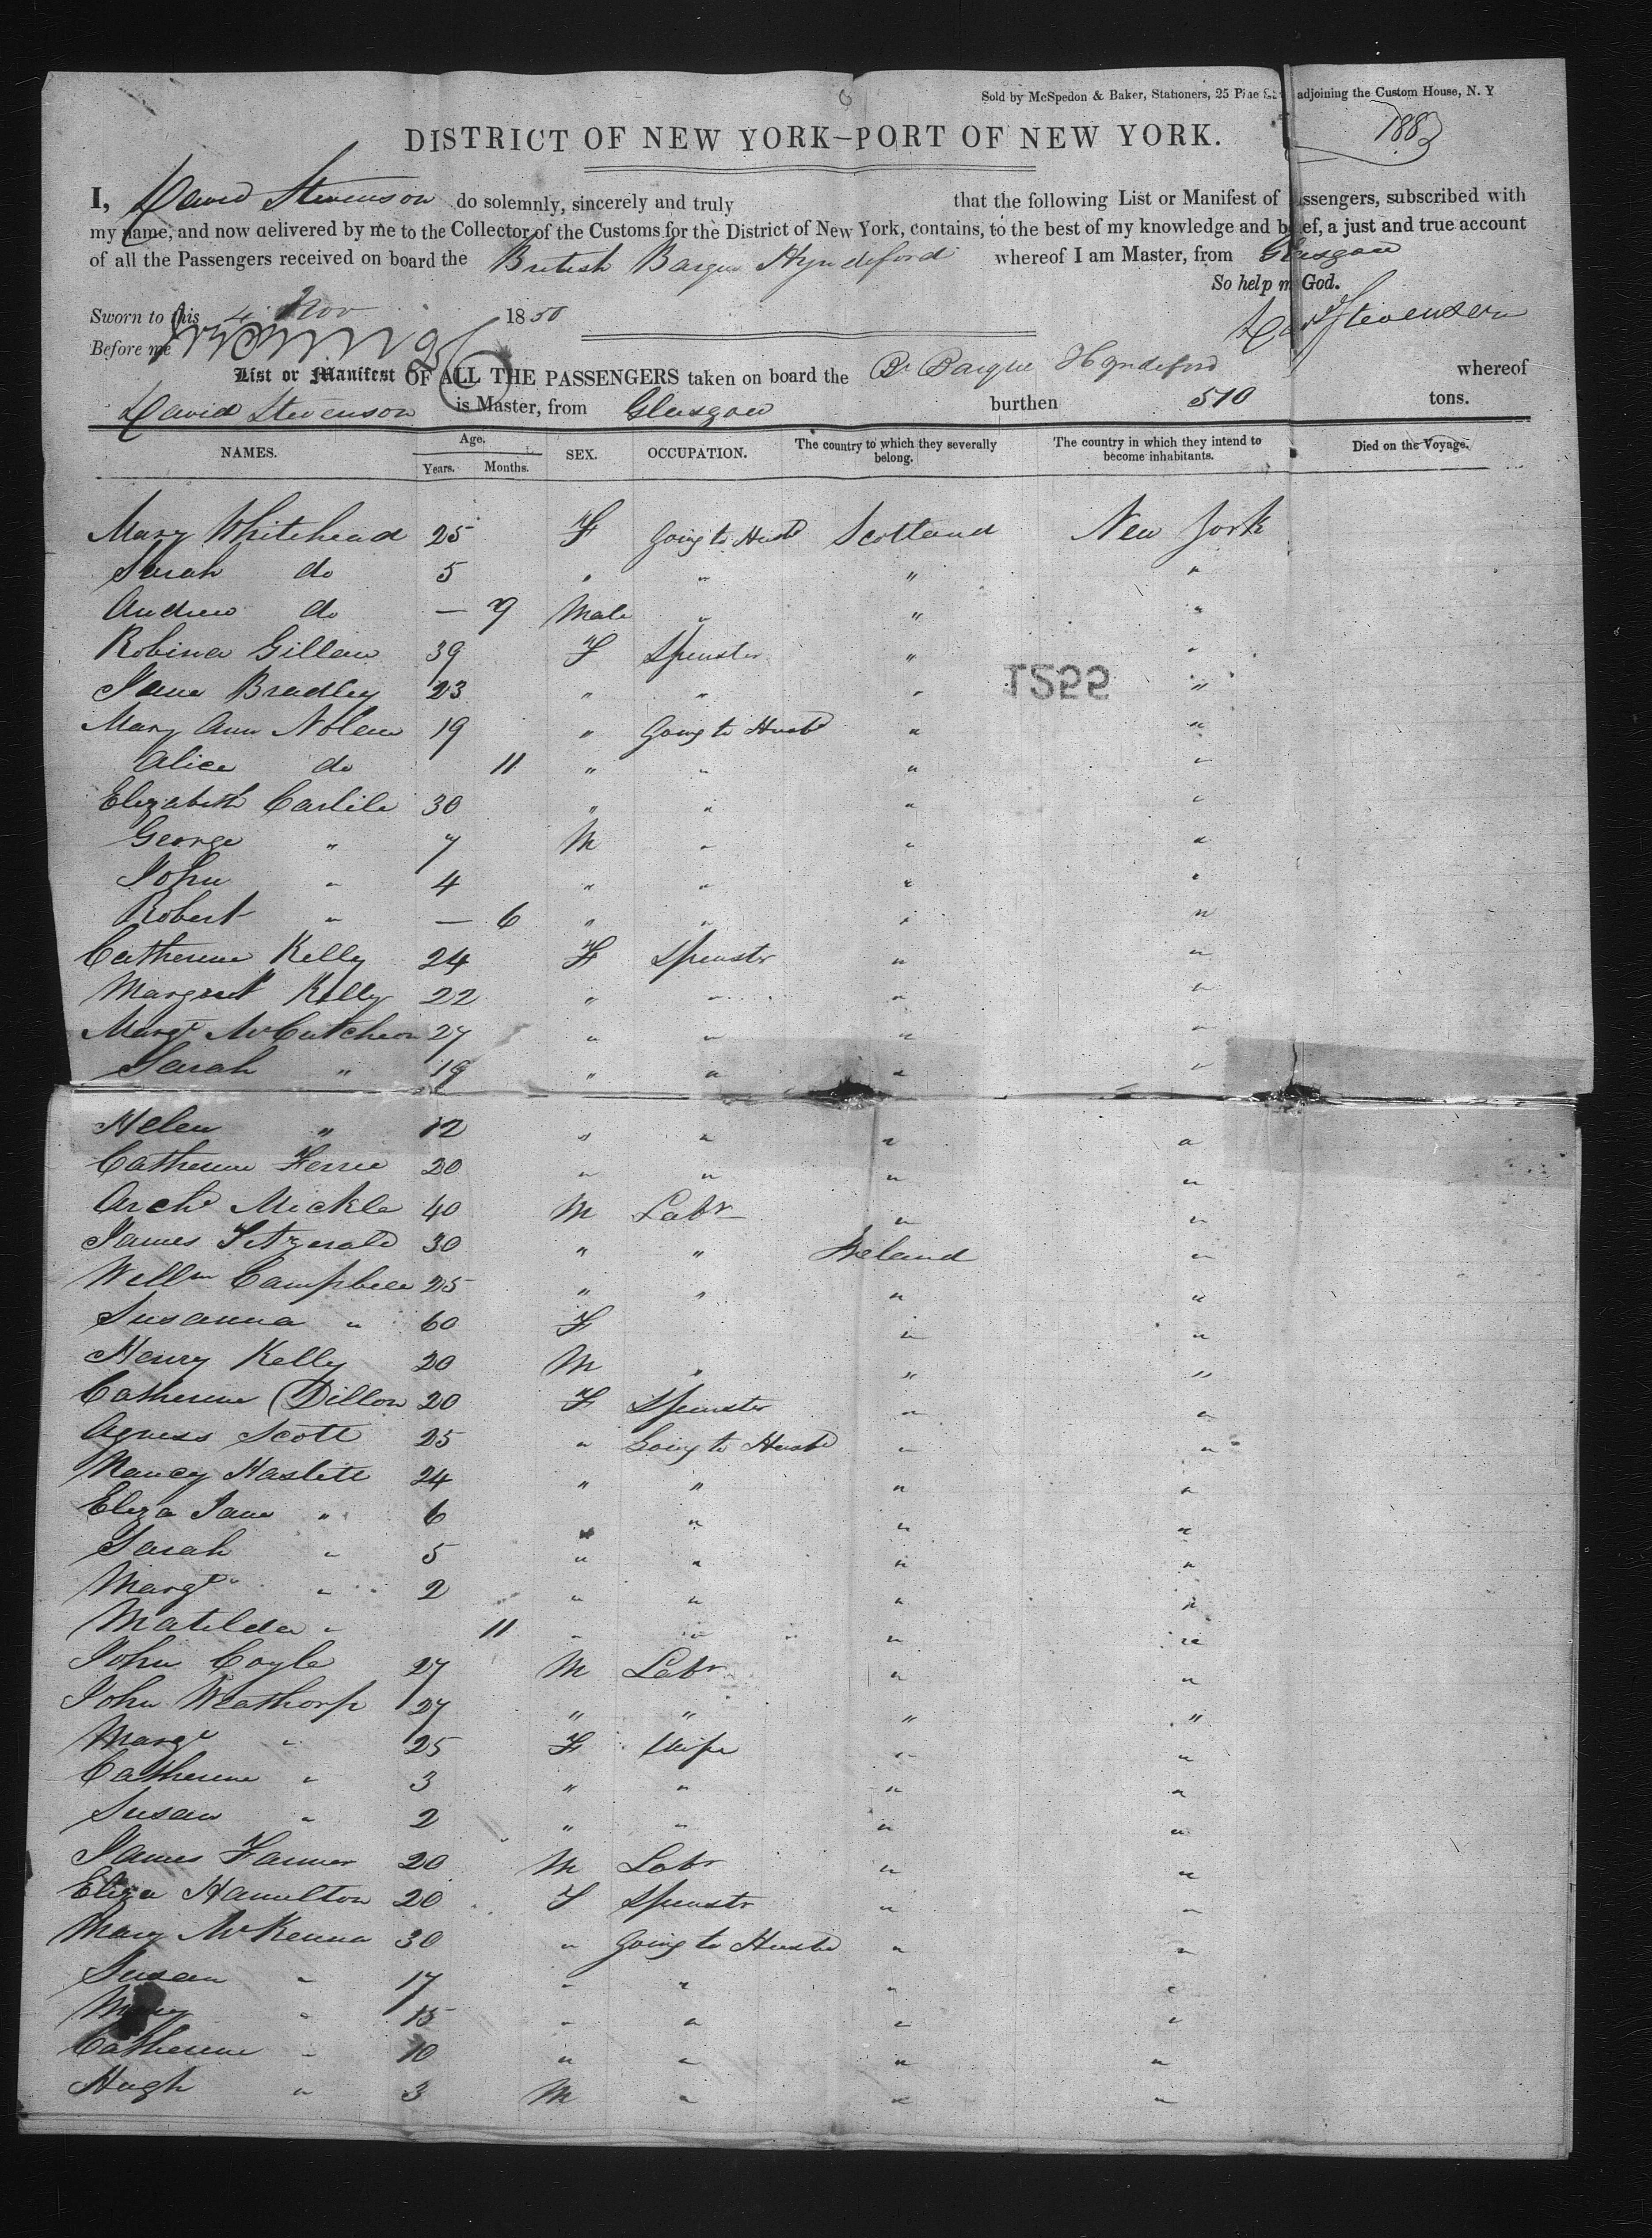 Sold by McSpedon & Baker, Stationers, 25 Pine adjoining the Custom House, N. Y
1883
DISTRICT OF NEW YORK—PORT OF NEW YORK.
I, David Stevenson do solemnly, sincerely and truly that the following List or Manifest of Passengers, subscribed with
my name, and now delivered by me to the Collector of the Customs for the District of New York, contains, to the best of my knowledge and belief, a just and true account
of all the Passengers received on board the British Barque Hyndeford whereof I am Master, from Glasgow
So help me God.
Sworn to this 4 Nov 1850
Davd Stevenson
Before me
List or Manifest OF ALL THE PASSENGERS taken on board the Br Barque Hyndeford whereof
David Stevenson is Master, from Glasgow burthen 510 tons.
NAMES. Age. Years. Months. SEX. OCCUPATION. The country to which they severally belong. The country in which they intend to become inhabitants. Died on the Voyage.
Mary Whitehead 25 F Going to Husbd Scotland New York
Sarah do 5 " " " "
Andrew do — 9 Male " " "
Robina Gillan 39 F Spinster " "
Jane Bradley 23 " " " "
1255
Mary Ann Nolan 19 " Going to Husbd " "
Alice do 11 " " " "
Elizabeth Carlile 30 " " " "
George " 7 M " " "
John " 4 " " " "
Robert " — 6 " " " "
Catherine Kelly 24 F Spinstr " "
Margaret Kelly 22 " " " "
Margt McCutcheon 27 " " " "
Sarah " 19 " " " "
Helen " 12 " " " "
Catherine Ferrie 20 " " " "
Archd Mickle 40 M Labr " "
James Fitzgerald 30 " " Ireland "
Willm Campbell 25 " " " "
Susanna " 60 F " "
Henry Kelly 20 M " " "
Catherine Dillon 20 F Spinster " "
Agness Scott 25 " Going to Husbd " "
Nancy Haslett 24 " " " "
Eliza Jane " 6 " " " "
Sarah " 5 " " " "
Margt " 2 " " " "
Matilda " 11 " " " "
John Coyle 27 M Labr " "
John Weathorp 27 " " " "
Margt " 25 F Wife " "
Catherine " 3 " " " "
Susan " 2 " " " "
James Farmer 20 M Labr " "
Eliza Hamilton 20 F Spinstr " "
Mary McKenna 30 " Going to Husbd " "
Susan " 17 " " " "
Mary " 15 " " " "
Catherine " 10 " " " "
Hugh " 3 M " " "